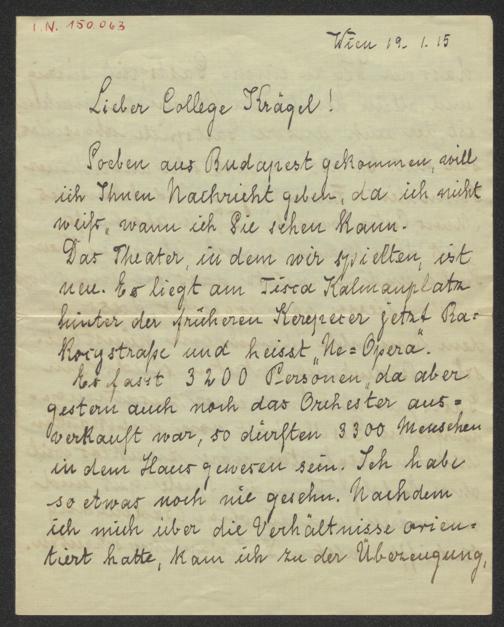 I.N. 150.063
Wien 19. 1. 15
Lieber College Krägel!
Soeben aus Budapest gekommen, will
ich Ihnen Nachricht geben, da ich nicht
weiß, wann ich Sie sehen kann.
Das Theater, in dem wir spielten, ist
neu. Es liegt am Tisca Kalmanplatz
hinter der früheren Kerepecer jetzt Ra=
Kocystraße und heisst „Ne=Opera".
Es fasst 3200 Personen, da aber
gestern auch noch das Orchester aus=
verkauft war, so dürften 3300 Menschen
in dem Haus gewesen sein. Ich habe
so etwas noch nie gesehn. Nachdem
ich mich über die Verhältnisse orien=
tiert hatte, kam ich zu der Überzeugung,